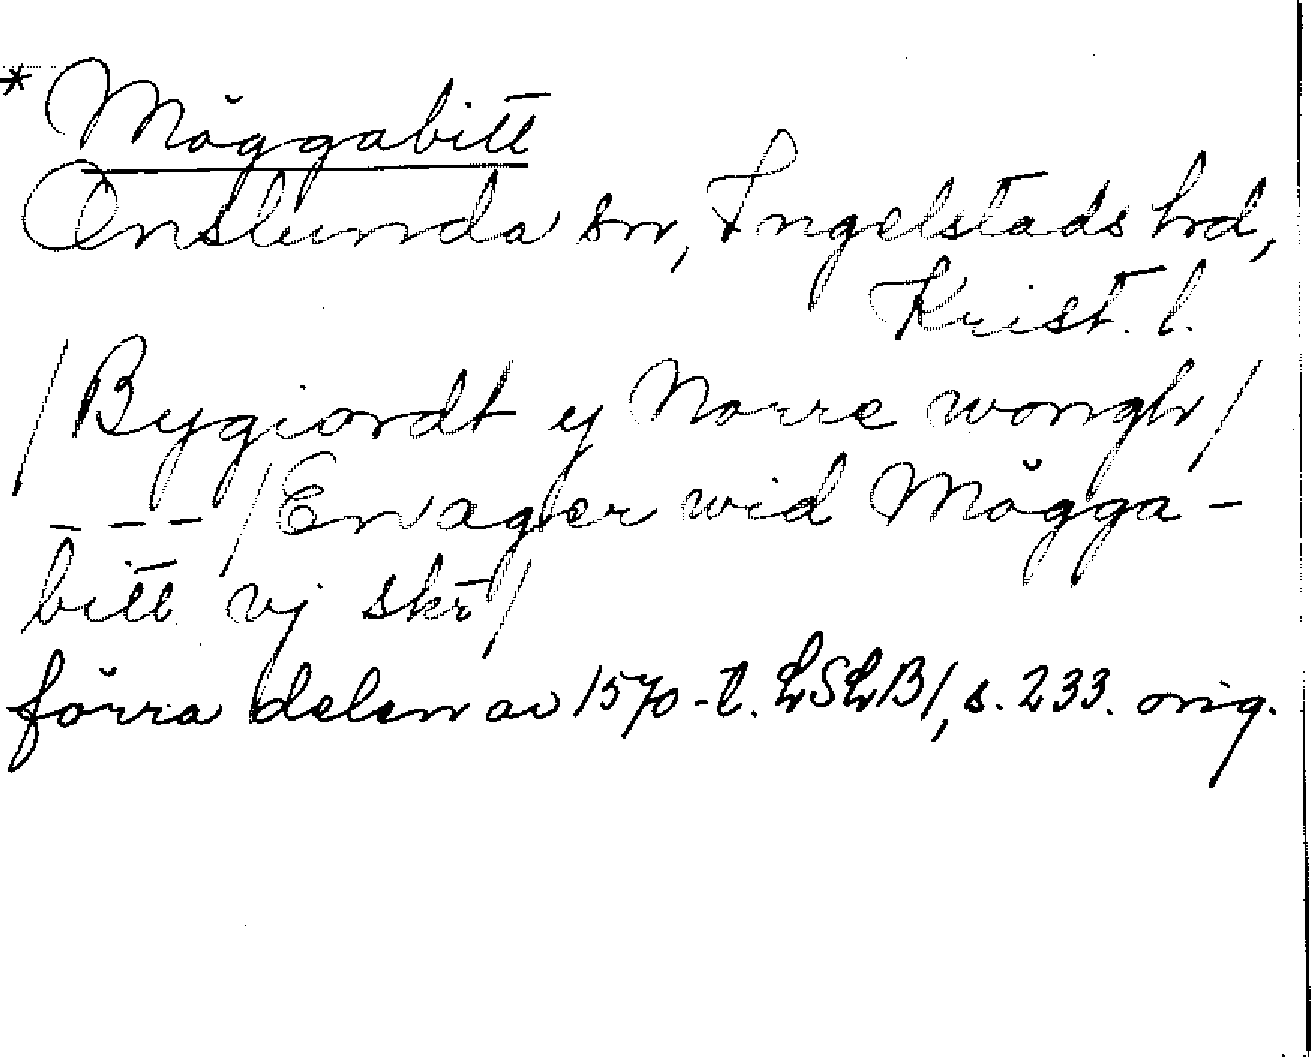 * Möggabitt
Onslunda sn, Ingelstads hrd,
Krist. l.
/Bygiordt y Norre wongh/
--- /En ager wid Mögga-
bitt vj skr/
förra delen av 1570-t. LSLB1, s. 233. orig.